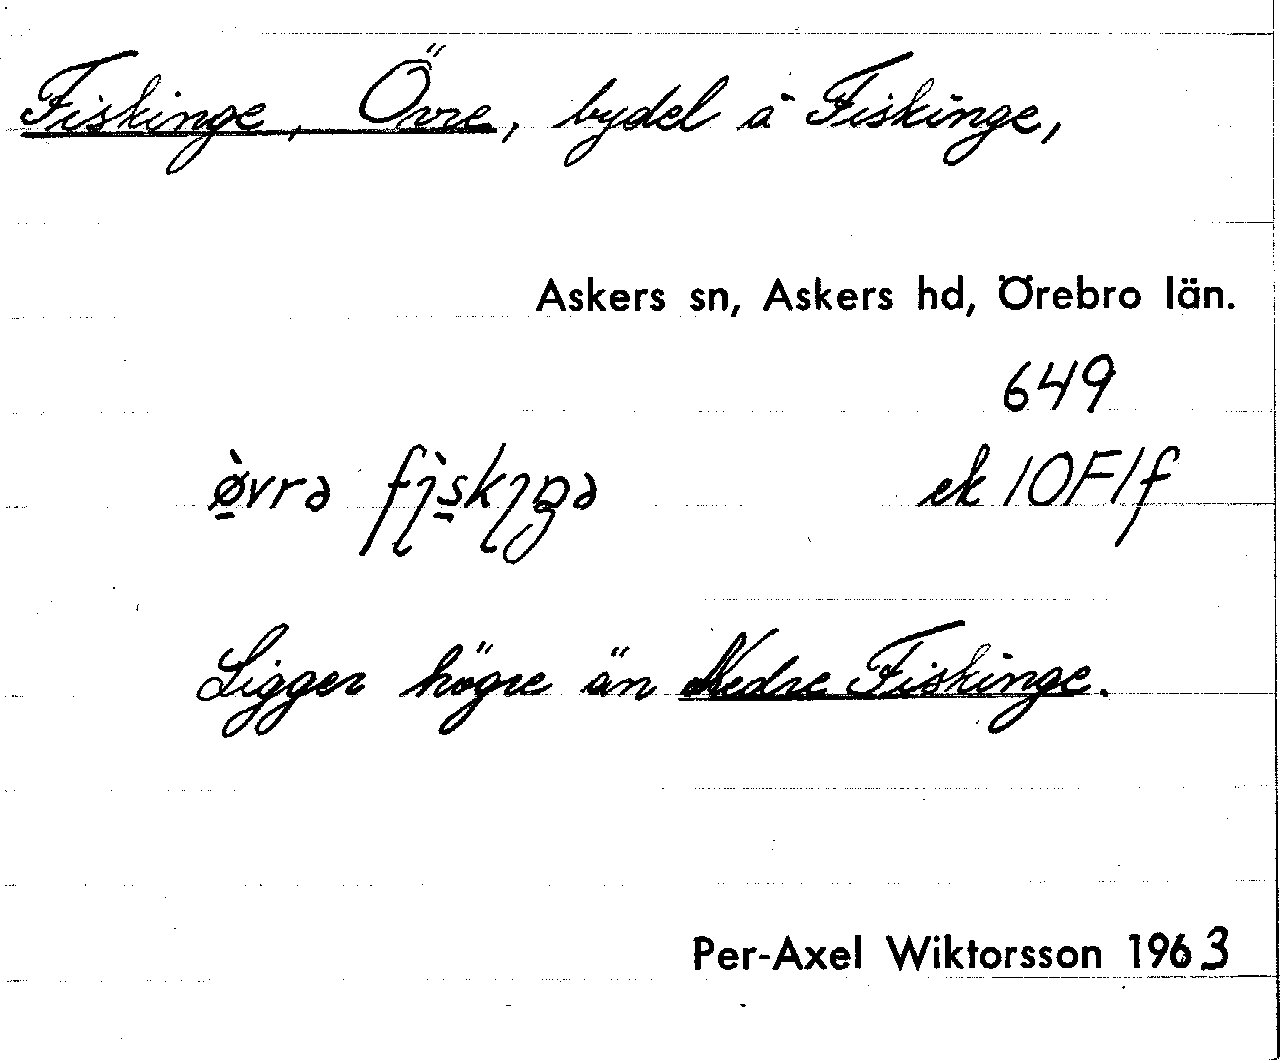 Fiskinge, Övre, bydel å Fiskinge,
Askers sn, Askers hd, Örebro län.
649
ø̀vrə fı̀skıŋə ek 10F1f
Ligger högre än Nedre Fiskinge.
Per-Axel Wiktorsson 1963